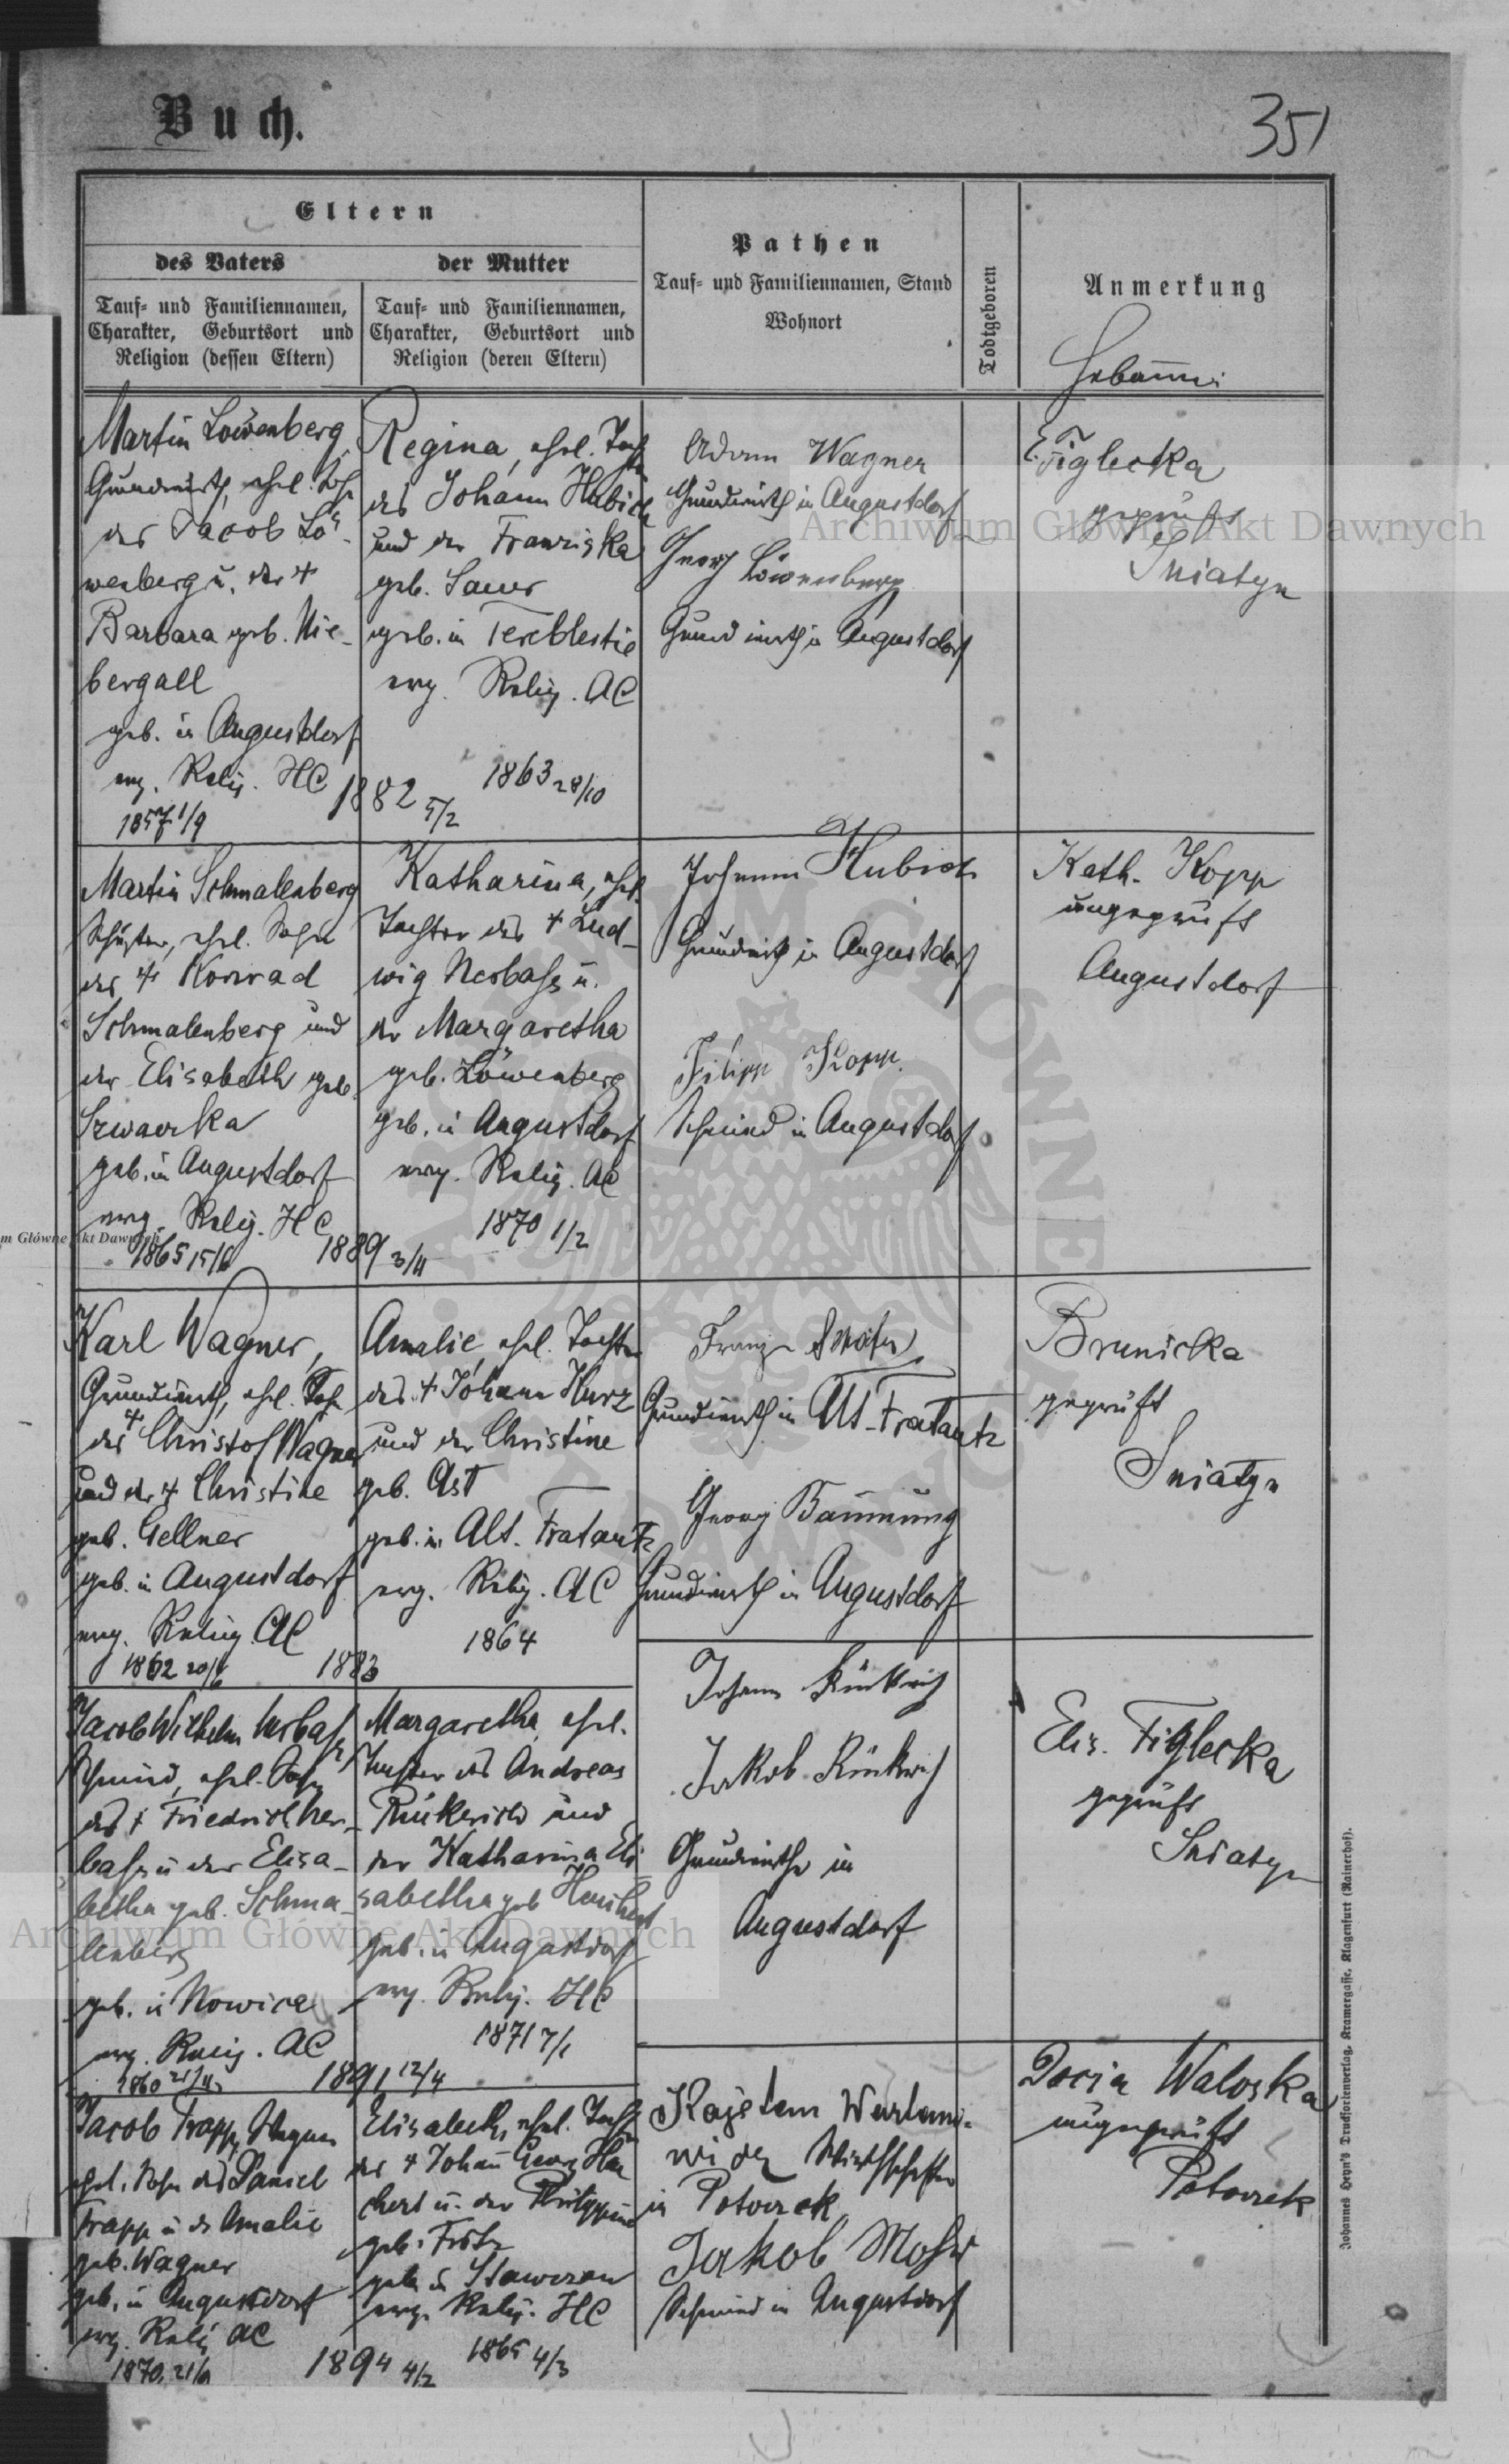 Buch.
351
Eltern
des Vaters
der Mutter
Tauf- und Familiennamen,
Charakter, Geburtsort und
Religion (dessen Eltern)
Tauf- und Familiennamen,
Charakter, Geburtsort und
Religion (deren Eltern)
Pathen
Tauf- und Familiennamen, Stand
Wohnort
Todtgeboren
Anmerkung
Martin Löwenberg,
Grundwirth, ehel. Sohn
des Jacob Lö-
wenberg u. der +
Barbara geb. Nie-
bergall
geb. in Augustdorf
evg. Relig. HC
1857 1/9
1882 5/2
Regina, ehel. Tochter
des Johann Hubich
und der Franziska
geb. Sauer
geb. in Tereblestie
evg. Relig. AC
1863 28/10
Adam Wagner
Grundwirth in Augustdorf
Georg Löwenberg
Grundwirth in Augustdorf
E. Figlecka
geprüft
Sniatyn
Martin Schmalenberg
Schuster, ehel. Sohn
des + Konrad
Schmalenberg und
der Elisabeth geb.
Szwarcka
geb. in Augustdorf
evg. Relig. HC
1865 15/
1889 3/11
Katharina, ehel.
Tochter des + Lud-
wig Nerbass u.
der Margaretha
geb. Löwenberg
geb. in Augustdorf
evg. Relig. AC
1870 1/2
Johann Hubich
Grundwirth in Augustdorf
Filipp Kopp
Schmied in Augustdorf
Kath. Kopp
ungeprüft
Augustdorf
Karl Wagner,
Grundwirth, ehel. Sohn
des + Christof Wagner
und der + Christine
geb. Gellner
geb. in Augustdorf
evg. Relig. AC
1862 20/
1883
Amalie, ehel. Tochter
des + Johann Kurz
und der Christine
geb. Ast
geb. in Alt-Fratautz
evg. Relig. AC
1864
Franz
Grundwirth in Alt-Fratautz
Georg Bäumung
Grundwirth in Augustdorf
Brunicka
geprüft
Sniatyn
Jacob Wilhelm Nerbass
Schmied, ehel. Sohn
des + Friedrich Ner-
bass u. der Elisa-
betha geb. Schma-
lenberg
geb. in Nowica
evg. Relig. AC
1860
1891 12/4
Margaretha, ehel.
Tochter des Andreas
Rückerich und
der Katharina Eli-
sabetha geb.
geb. in Augustdorf
evg. Relig. HC
1871 7/1
Johann Rückrich
Jakob Rückrich
Grundwirthe in
Augustdorf
Elis. Figlecka
geprüft
Sniatyn
Jacob Trapp, Wagner
ehel. Sohn des Daniel
Trapp u. d. Amalie
geb. Wagner
geb. in Augustdorf
evg. Relig. AC
1870 21/
1894 4/2
Elisabeth, ehel. Tochter
des + Johann Georg
u. der Philippine
geb.
geb. in
evg. Relig. HC
1865 4/3
Kajetan
in Potoczek
Jakob Mohr
Schmied in Augustdorf
Docia Waloska
ungeprüft
Potoczek
Johannes Heyn's Drucksortenverlag, Kramergasse, Klagenfurt (Rainerhof).
Archiwum Główne Akt Dawnych
Archiwum Główne Akt Dawnych
m Główne Akt Dawnych